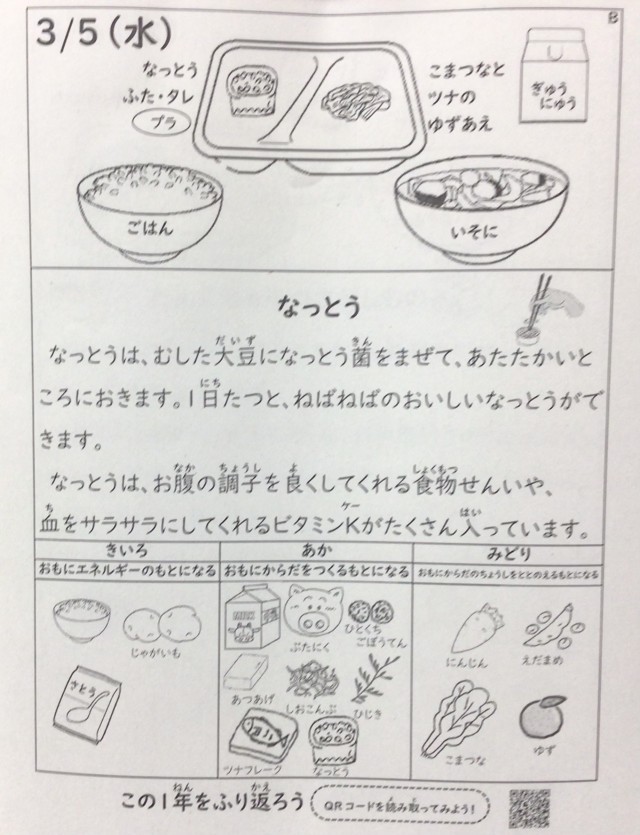 3/5(水)
B
なっとう
ふた・タレ
プラ
こまつなと
ツナの
ゆずあえ
ぎゅう
にゅう
ごはん
いそに
なっとう
なっとうは、むした大豆になっとう菌をまぜて、あたたかいと
ころにおきます。1日たつと、ねばねばのおいしいなっとうがで
きます。
なっとうは、お腹の調子を良くしてくれる食物せんいや、
血をサラサラにしてくれるビタミンKがたくさん入っています。
きいろ
おもにエネルギーのもとになる
じゃがいも
さとう
あか
おもにからだをつくるもとになる
MILK
ぶたにく
ひとくち
ごぼうてん
あつあげ
しおこんぶ
ひじき
ツナフレーク
なっとう
みどり
おもにからだのちょうしをととのえるもとになる
にんじん
えだまめ
こまつな
ゆず
この1年をふり返ろう
QRコードを読み取ってみよう!